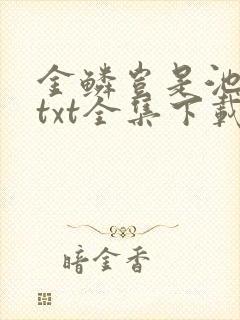 金鳞岂是池
txt全集下载
暗金香